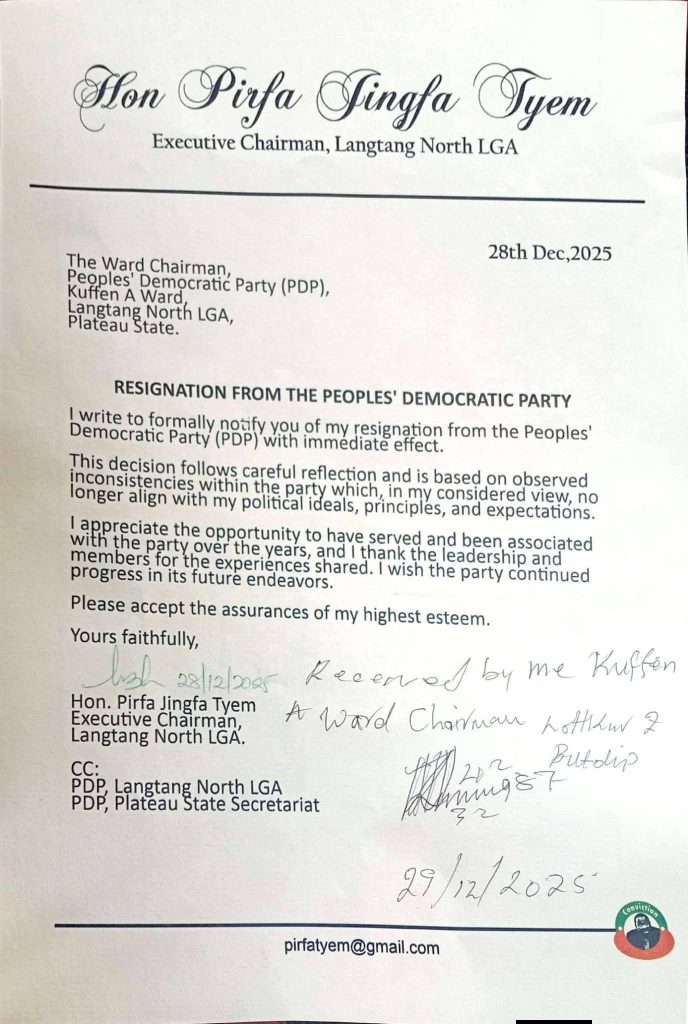 Hon Pirfa Jingfa Tyem
Executive Chairman, Langtang North LGA
28th Dec,2025
The Ward Chairman,
Peoples' Democratic Party (PDP),
Kuffen A Ward,
Langtang North LGA,
Plateau State.
RESIGNATION FROM THE PEOPLES' DEMOCRATIC PARTY
I write to formally notify you of my resignation from the Peoples'
Democratic Party (PDP) with immediate effect.
This decision follows careful reflection and is based on observed
inconsistencies within the party which, in my considered view, no
longer align with my political ideals, principles, and expectations.
I appreciate the opportunity to have served and been associated
with the party over the years, and I thank the leadership and
members for the experiences shared. I wish the party continued
progress in its future endeavors.
Please accept the assurances of my highest esteem.
Yours faithfully,
28/12/2025
Received by me Kuffen
A Ward Chairman
Hon. Pirfa Jingfa Tyem
Executive Chairman,
Langtang North LGA.
CC:
PDP, Langtang North LGA
PDP, Plateau State Secretariat
29/12/2025
Conviction
pirfatyem@gmail.com